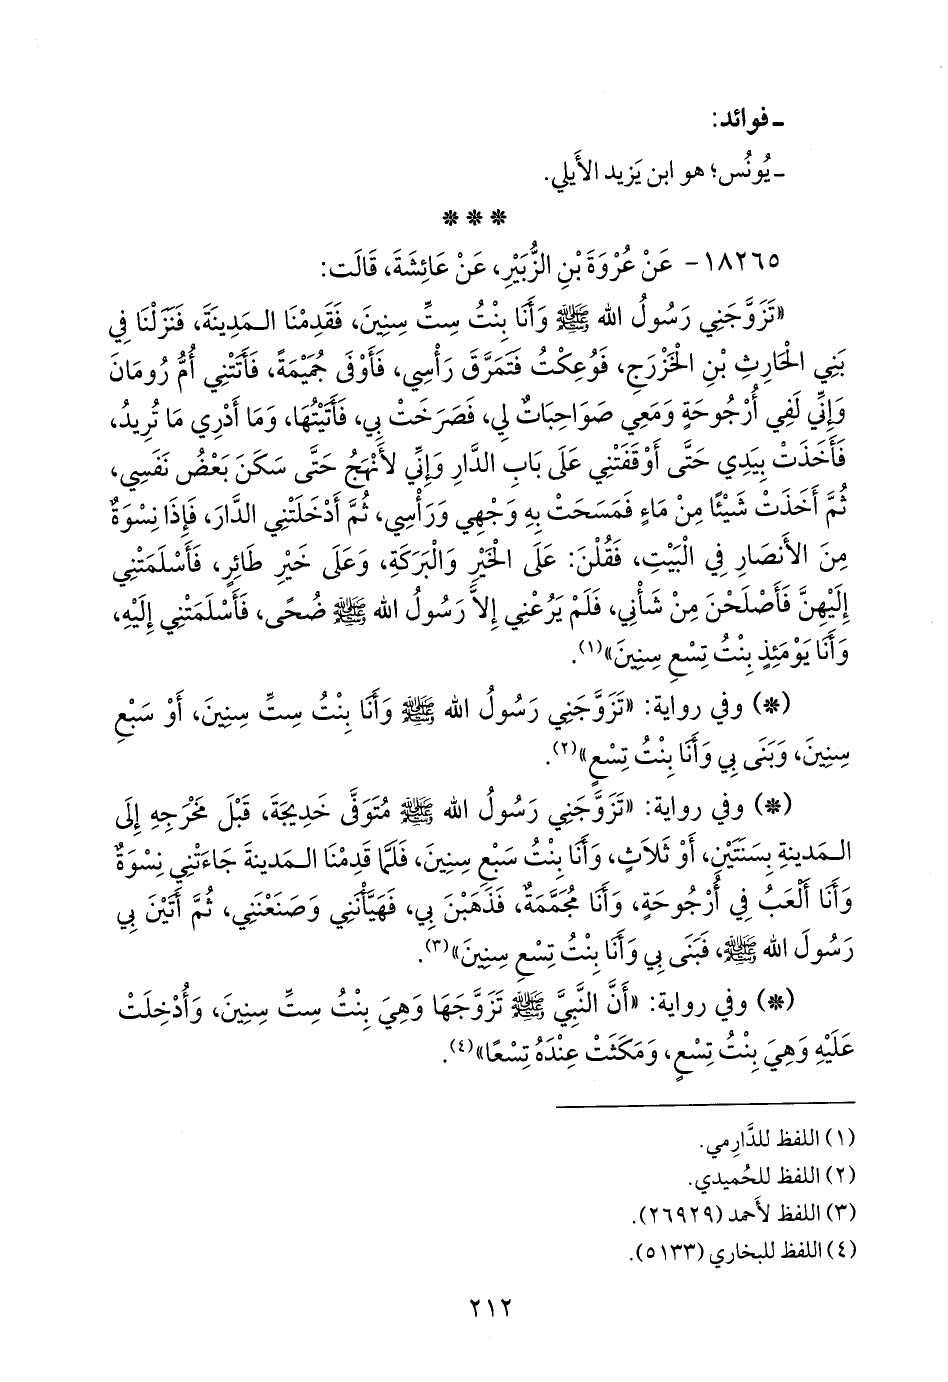 ـ فوائد:
ـ يُونُس؛ هو ابن يَزيد الأَيلي.
* * *
١٨٢٦٥ - عَنْ عُرْوَةَ بْنِ الزُّبَيْرِ، عَنْ عَائِشَةَ، قَالَت:
«تَزَوَّجَنِي رَسُولُ الله ﷺ وَأَنَا بِنْتُ سِتِّ سِنِينَ، فَقَدِمْنَا الـمَدِينَةَ، فَنَزَلْنَا فِي
بَنِي الْحَارِثِ بْنِ الْخَزْرَجِ، فَوُعِكْتُ فَتَمَرَّقَ رَأْسِي، فَأَوْفَى جُمَيْمَةً، فَأَتَتْنِي أُمُّ رُومَانَ
وَإِنِّي لَفِي أُرْجُوحَةٍ وَمَعِي صَوَاحِبَاتٌ لِي، فَصَرَخَتْ بِي، فَأَتَيْتُهَا، وَمَا أَدْرِي مَا تُرِيدُ،
فَأَخَذَتْ بِيَدِي حَتَّى أَوْقَفَتْنِي عَلَى بَابِ الدَّارِ وَإِنِّي لأَنْهَجُ حَتَّى سَكَنَ بَعْضُ نَفَسِي،
ثُمَّ أَخَذَتْ شَيْئًا مِنْ مَاءٍ فَمَسَحَتْ بِهِ وَجْهِي وَرَأْسِي، ثُمَّ أَدْخَلَتْنِي الدَّارَ، فَإِذَا نِسْوَةٌ
مِنَ الأَنصَارِ فِي الْبَيْتِ، فَقُلْنَ: عَلَى الْخَيْرِ وَالْبَرَكَةِ، وَعَلَى خَيْرِ طَائِرٍ، فَأَسْلَمَتْنِي
إِلَيْهِنَّ فَأَصْلَحْنَ مِنْ شَأْنِي، فَلَمْ يَرُعْنِي إِلاَّ رَسُولُ الله ﷺ ضُحًى، فَأَسْلَمَتْنِي إِلَيْهِ،
وَأَنَا يَوْمَئِذٍ بِنْتُ تِسْعِ سِنِينَ»(١).
(*) وفي رواية: «تَزَوَّجَنِي رَسُولُ الله ﷺ وَأَنَا بِنْتُ سِتِّ سِنِينَ، أَوْ سَبْعِ
سِنِينَ، وَبَنَى بِي وَأَنَا بِنْتُ تِسْعٍ»(٢).
(*) وفي رواية: «تَزَوَّجَنِي رَسُولُ الله ﷺ مُتَوَفَّى خَدِيجَةَ، قَبْلَ مَخْرَجِهِ إِلَى
الـمَدينةِ بِسَنَتَيْنِ، أَوْ ثَلاَثٍ، وَأَنَا بِنْتُ سَبْعِ سِنِينَ، فَلَمَّا قَدِمْنَا الـمَدينةَ جَاءَتْنِي نِسْوَةٌ
وَأَنَا أَلْعَبُ فِي أُرْجُوحَةٍ، وَأَنَا مُجَمَّمَةٌ، فَذَهَبْنَ بِي، فَهَيَّأْنَنِي وَصَنَعْنَنِي، ثُمَّ أَتَيْنَ بِي
رَسُولَ الله ﷺ، فَبَنَى بِي وَأَنَا بِنْتُ تِسْعِ سِنِينَ»(٣).
(*) وفي رواية: «أَنَّ النَّبِيَّ ﷺ تَزَوَّجَهَا وَهِيَ بِنْتُ سِتِّ سِنِينَ، وَأُدْخِلَتْ
عَلَيْهِ وَهِيَ بِنْتُ تِسْعٍ، وَمَكَثَتْ عِنْدَهُ تِسْعًا»(٤).
(١) اللفظ للدَّارِمي.
(٢) اللفظ للحُميدي.
(٣) اللفظ لأَحمد (٢٦٩٢٩).
(٤) اللفظ للبخاري (٥١٣٣).
٢١٢